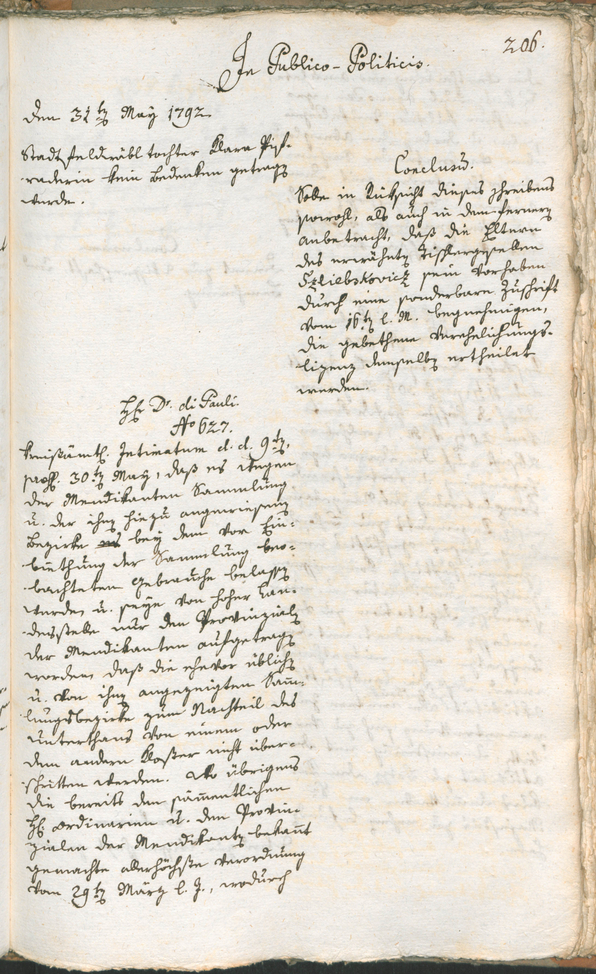 206.
In Publico-Politicis.
den 31ten May 1792
Stadt feldräbl tochter Klara
kein Bedenken getragen
werde.
Conclusum.
Solle in Rüksicht dieses schreibens
sowohl, als auch in dem fernern
anbetracht, daß die Eltern
des erwähnten Tischlergesellen
sein Vorhaben
durch eine sonderbare Zuschrift
vom 16ten l. M. begnehmigen,
die gebethene Verehelichungs-
lizenz demselben ertheilet
werden.
Hr Dr. di Pauli
No 627.
Kreisämtl. Intimatum d. d. 9ten,
praes. 30ten May, daß es wegen
der Mendikanten Sammlung
u. der ihnen hiezu angewiesenen
Bezirke bey dem vor Ein-
biethung der Sammlung beo-
bachteten Gebrauche belassen
werden u. seye von hoher Lan-
desstelle nur den Provinzialen
der Mendikanten aufgetragen
worden, daß die ehevor üblichen
u. von ihnen angezeigten Sam̄-
lungsbezirke zum Nachteil des
unterthans von einem oder
dem andern Kloster nicht über-
schritten werden. Wo übrigens
die bereits den sämmentlichen
Hr ordinarien u. den Provin-
zialen der Mendikanten bekannt
gemachte allerhöchste Verordnung
vom 29ten März l. J., wodurch